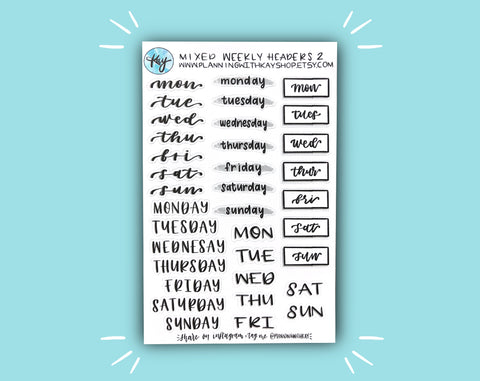 Kay
MIXED WEEKLY HEADERS 2
WWW.PLANNINGWITHKAYSHOP.ETSY.COM
mon
tue
wed
thu
fri
sat
sun
MONDAY
TUESDAY
WEDNESAY
THURSDAY
FRIDAY
SATURDAY
SUNDAY
monday
tuesday
wednesday
thursday
friday
saturday
sunday
MON
TUE
WED
THU
FRI
mon
tues
wed
thur
fri
sat
sun
SAT
SUN
share on instagram + tag me @PLANNINGWITHKAY